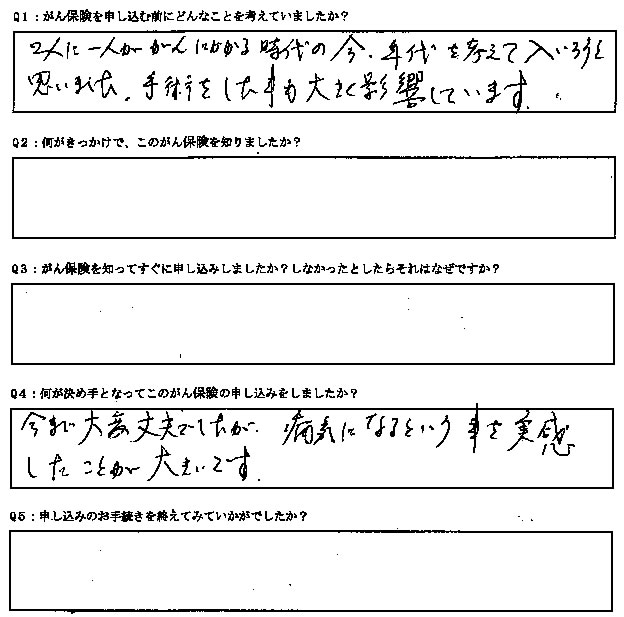 Q1:がん保険を申し込む前にどんなことを考えていましたか?
2人に一人ががんにかかる時代の今、年代を考えて入いろうと
思いました。手術をした事も大きく影響しています。
Q2:何がきっかけで、このがん保険を知りましたか?
Q3:がん保険を知ってすぐに申し込みしましたか?しなかったとしたらそれはなぜですか?
Q4:何が決め手となってこのがん保険の申し込みをしましたか?
今まで大変丈夫でしたが、病気になるという事を実感
したことが大きいです。
Q5:申し込みのお手続きを終えてみていかがでしたか?